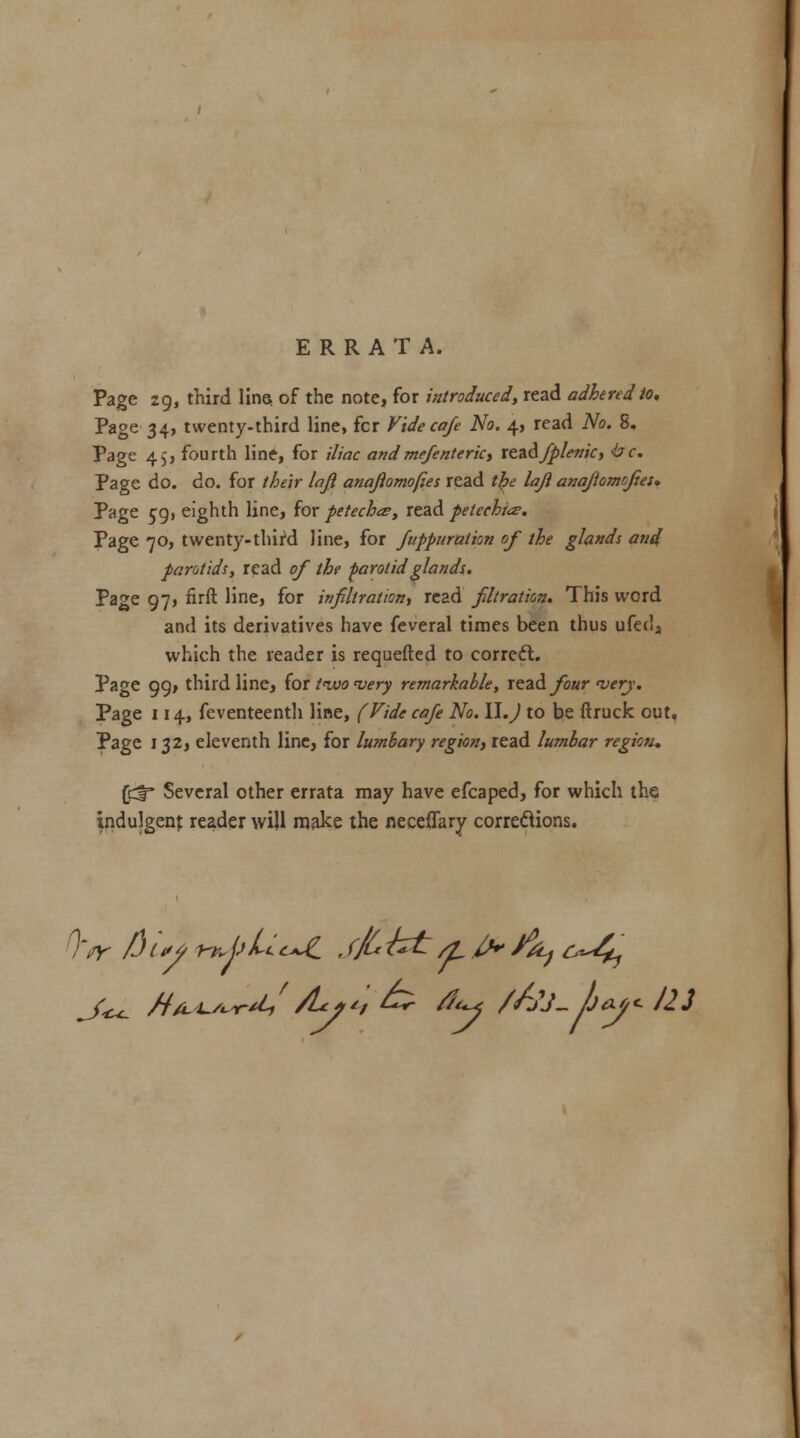 ERRATA.
Page 29, third line of the note, for introduced, read adhered to.
Page 34, twenty-third line, for Vide caſe No. 4, read No. 8.
Page 45, fourth line, for iliac and meſenteric, read ſplenic, &c.
Page do. do. for their laſt anaſtomoſies read the laſt anaſtomoſies.
Page 59, eighth line, for petechæ, read petechiæ.
Page 70, twenty-third line, for ſuppuration of the glands and
parotids, read of the parotid glands.
Page 97, firſt line, for infiltration, read filtration. This word
and its derivatives have ſeveral times been thus uſed,
which the reader is requeſted to correct.
Page 99, third line, for two very remarkable, read four very.
Page 114, ſeventeenth line, (Vide caſe No. II.) to be ſtruck out.
Page 132, eleventh line, for lumbary region, read lumbar region.
☞ Several other errata may have eſcaped, for which the
indulgent reader will make the neceſſary corrections.
See
page 123